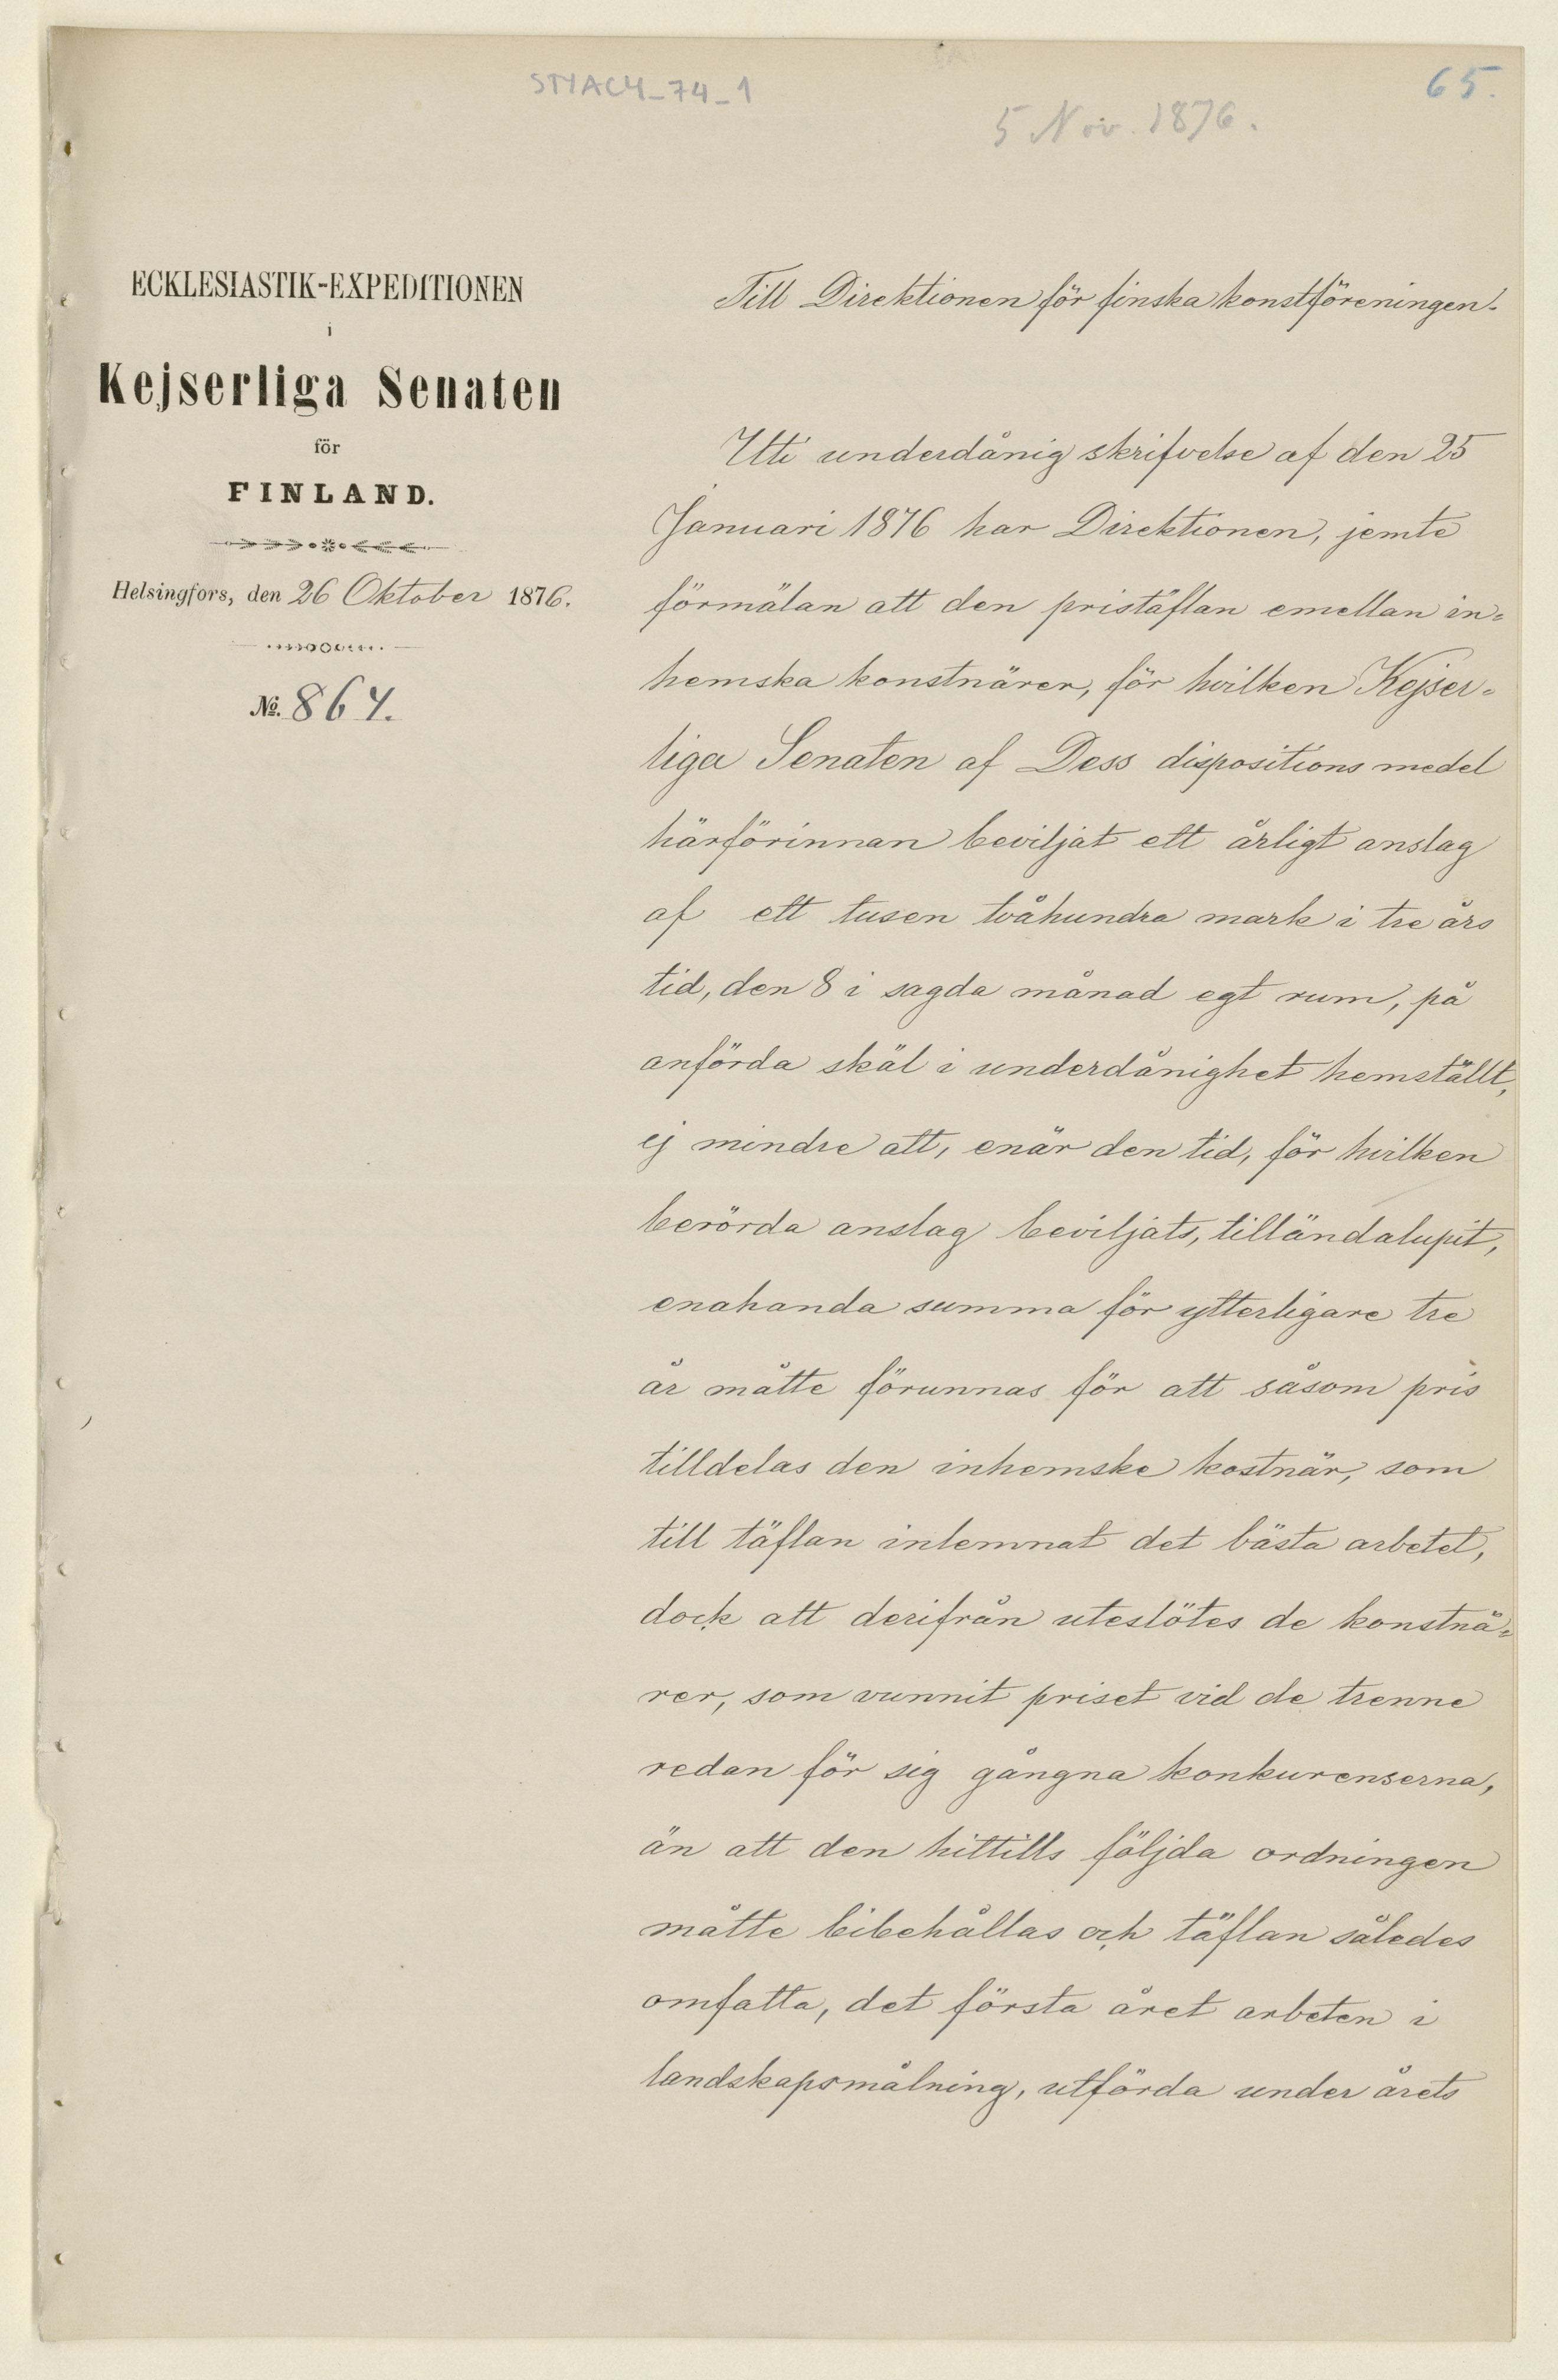 STYAC4_74_1
65.
5 Nov. 1876.
ECKLESIASTIK-EXPEDITIONEN
i
Kejserliga Senaten
för
FINLAND.
Helsingfors, den 26 Oktober 1876.
No. 864.
Till Direktionen för finska konstföreningen.
Uti underdånig skrifvelse af den 25
Januari 1876 har Direktionen, jemte
förmälan att den pristäflan emellan in=
hemska konstnärer, för hvilken Kejser=
liga Senaten af Dess dispositions medel
härförinnan beviljat ett årligt anslag
af ett tusen tvåhundra mark i tre års
tid, den 8 i sagda månad egt rum, på
anförda skäl i underdånighet hemställt,
ej mindre att, enär den tid, för hvilken
berörda anslag beviljats, tilländalupit,
enahanda summa för ytterligare tre
år måtte förunnas för att såsom pris
tilldelas den inhemske kostnär, som
till täflan inlemnat det bästa arbetet,
dock att derifrån uteslötes de konstnä=
rer, som vunnit priset vid de trenne
redan för sig gångna konkurenserna,
än att den hittills följda ordningen
måtte bibehållas och täflan således
omfatta, det första året arbeten i
landskapsmålning, utförda under årets